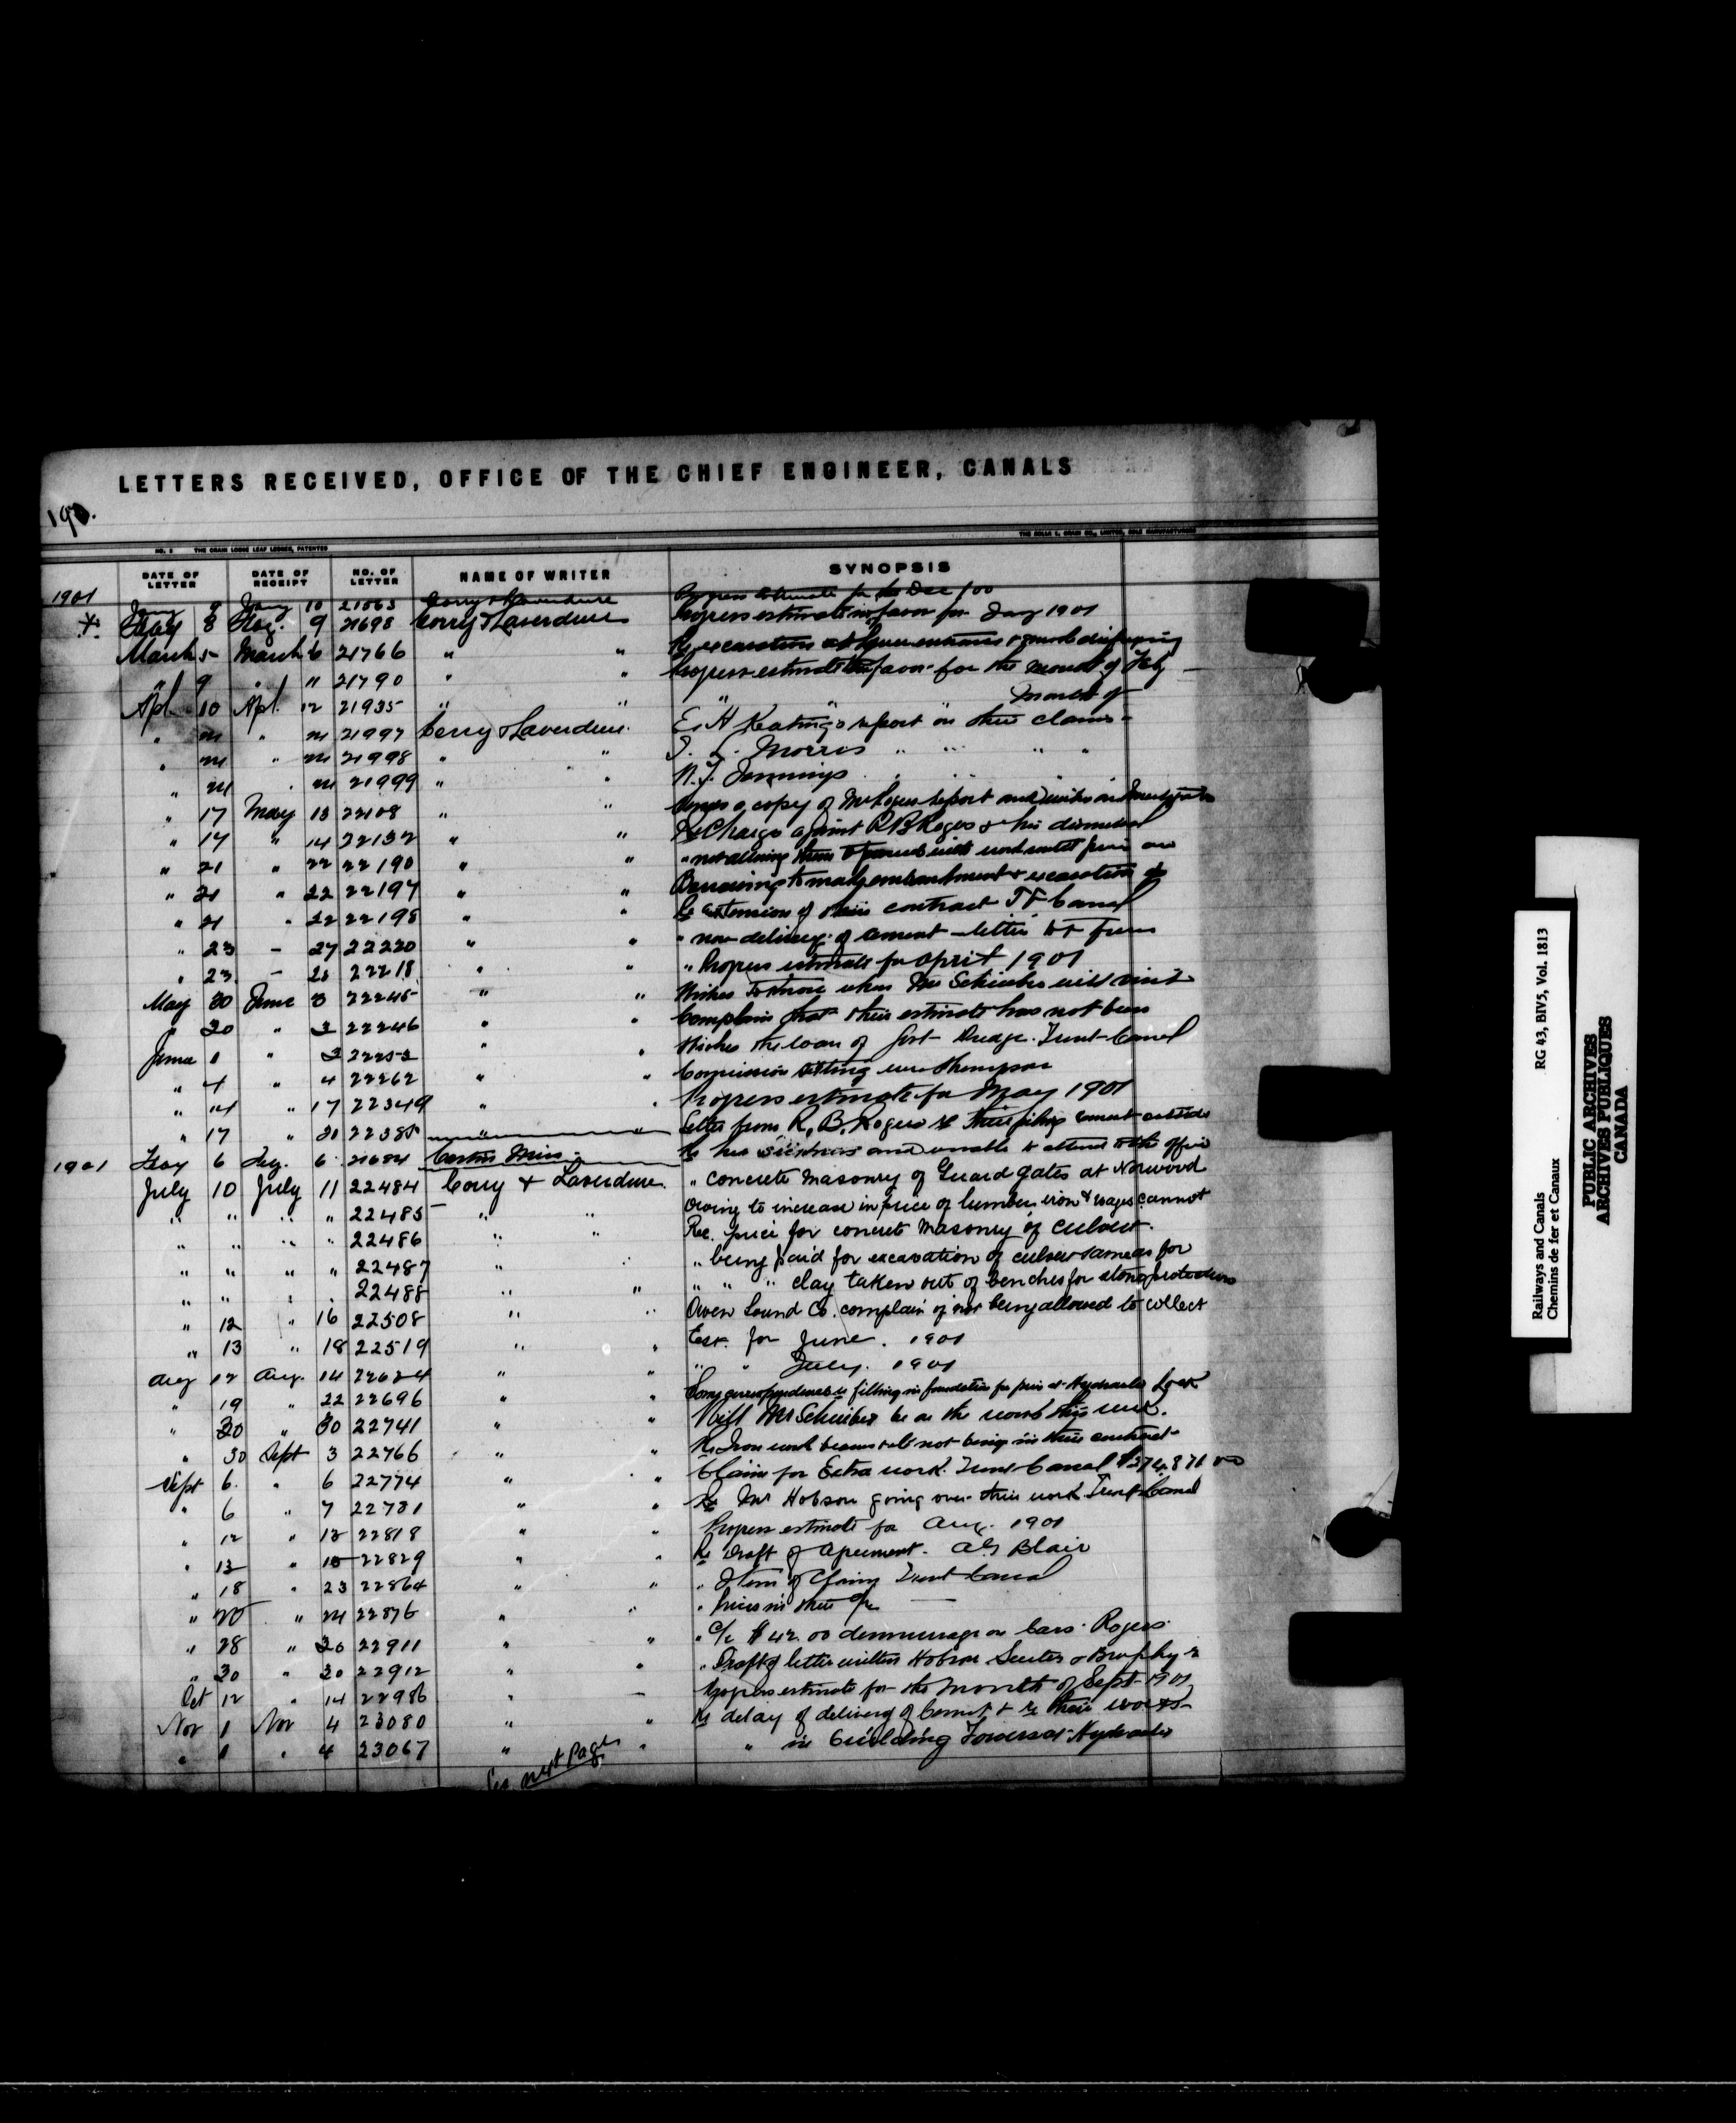 LETTERS RECEIVED, OFFICE OF THE CHIEF ENGINEER, CANALS
190.
NO. 2 THE CRAIN LOOSE LEAF LEDGER, PATENTED
DATE OF LETTER DATE OF RECEIPT NO. OF LETTER NAME OF WRITER SYNOPSIS
1901
Jany 9 Jany 10 21563 Corry & Laverdure Progress estimate for Dec /00
Feby 8 Feby. 9 21698 Corry & Laverdure Progress estimate in favor for Jany 1901
March 5 March 6 21766 " " Re excavation at
" 9 " " 21790 " " Progress estimate in favor for the month of Feby
Apl 10 Apl. 12 21935 " " " " March of
" 24 " 24 21997 Corry & Laverdure. E. H Keating's report on their claims
" 24 " 24 21998 " " J. L. Morris " " " "
" 24 " 24 21999 " " W. T. Jennings
" 17 May 13 22108 " " copy of Mr Rogers report and
" 14 " 14 22132 " " Re Charge against R B Rogers & his dismissal
" 21 " 22 22190 " " " not allowing them to proceed with work until
" 21 " 22 22197 " " Borrowing to make embankment & excavation
" 21 " 22 22198 " " Re extension of their contract T F Canal
" 23 - 27 22220 " " " non delivery of cement - letter
" 23 - 28 22218 " " " Progress estimate for April 1901
May 30 June 3 22245 " " Wishes to know when Mr Schreiber will visit
" 30 " 3 22246 " " Complain that their estimate has not been
June 1 " 3 22252 " " Wishes the loan of Govt Dredge. Trent Canal
" 4 " 4 22262 " " Commission sitting
" 14 " 17 22349 " " Progress estimate for May 1901
" 17 " 21 22385 " " Letter from R. B. Rogers re their piling cement outside
1901 Feby 6 Feby. 6 21684 Miss Re her sickness and unable to attend to the office
July 10 July 11 22484 Corry & Laverdure. " Concrete Masonry of Guard Gates at Norwood
" " " " 22485 " " Owing to increase in price of lumber, iron & wages cannot
" " " " 22486 " " Re. price for concrete masonry of culvert.
" " " " 22487 " " " being paid for excavation of culvert same as for
" " " " 22488 " " " " " clay taken out of benches for stone protection
" 12 " 16 22508 " " Owen Sound Co. complain of not being allowed to collect
" 13 " 18 22519 " " Est. for June. 1901
Aug 12 Aug. 14 22624 " " " " July. 1901
" 19 " 22 22696 " " Copy correspondence re filling in foundation for piers at Hydraulic Lock
" 30 " 30 22741 " " Will Mr Schreiber be on the work this week.
" 30 Sept 3 22766 " " Re Iron work beams &c not being in their contract
Sept 6. " 6 22774 " " Claim for Extra work. Trent Canal $274,871 00
" 6 " 7 22781 " " Re Mr Hobson going over their work Trent Canal
" 12 " 13 22818 " " Progress estimate for Aug. 1901
" 12 " 15 22829 " " Re Draft of Agreement. A G Blair
" 18 " 23 22864 " " " Item of Claim Trent Canal
" 20 " 24 22876 " " " Prices in their
" 28 " 30 22911 " " " a/c $42.00 demurrage on Cars. Rogers
" 30 " 30 22912 " " " Draft of letter written Hobson
Oct 12 " 14 22986 " " Progress estimate for the month of Sept 1901
Nov 1 Nov 4 23080 " " Re delay of delivery of Cement & re their works
" 1 " 4 23067 " " " in building Towers at Hydraulic
See next Page
Railways and Canals
Chemins de fer et Canaux
RG 43, BIV5, Vol. 1813
PUBLIC ARCHIVES
ARCHIVES PUBLIQUES
CANADA